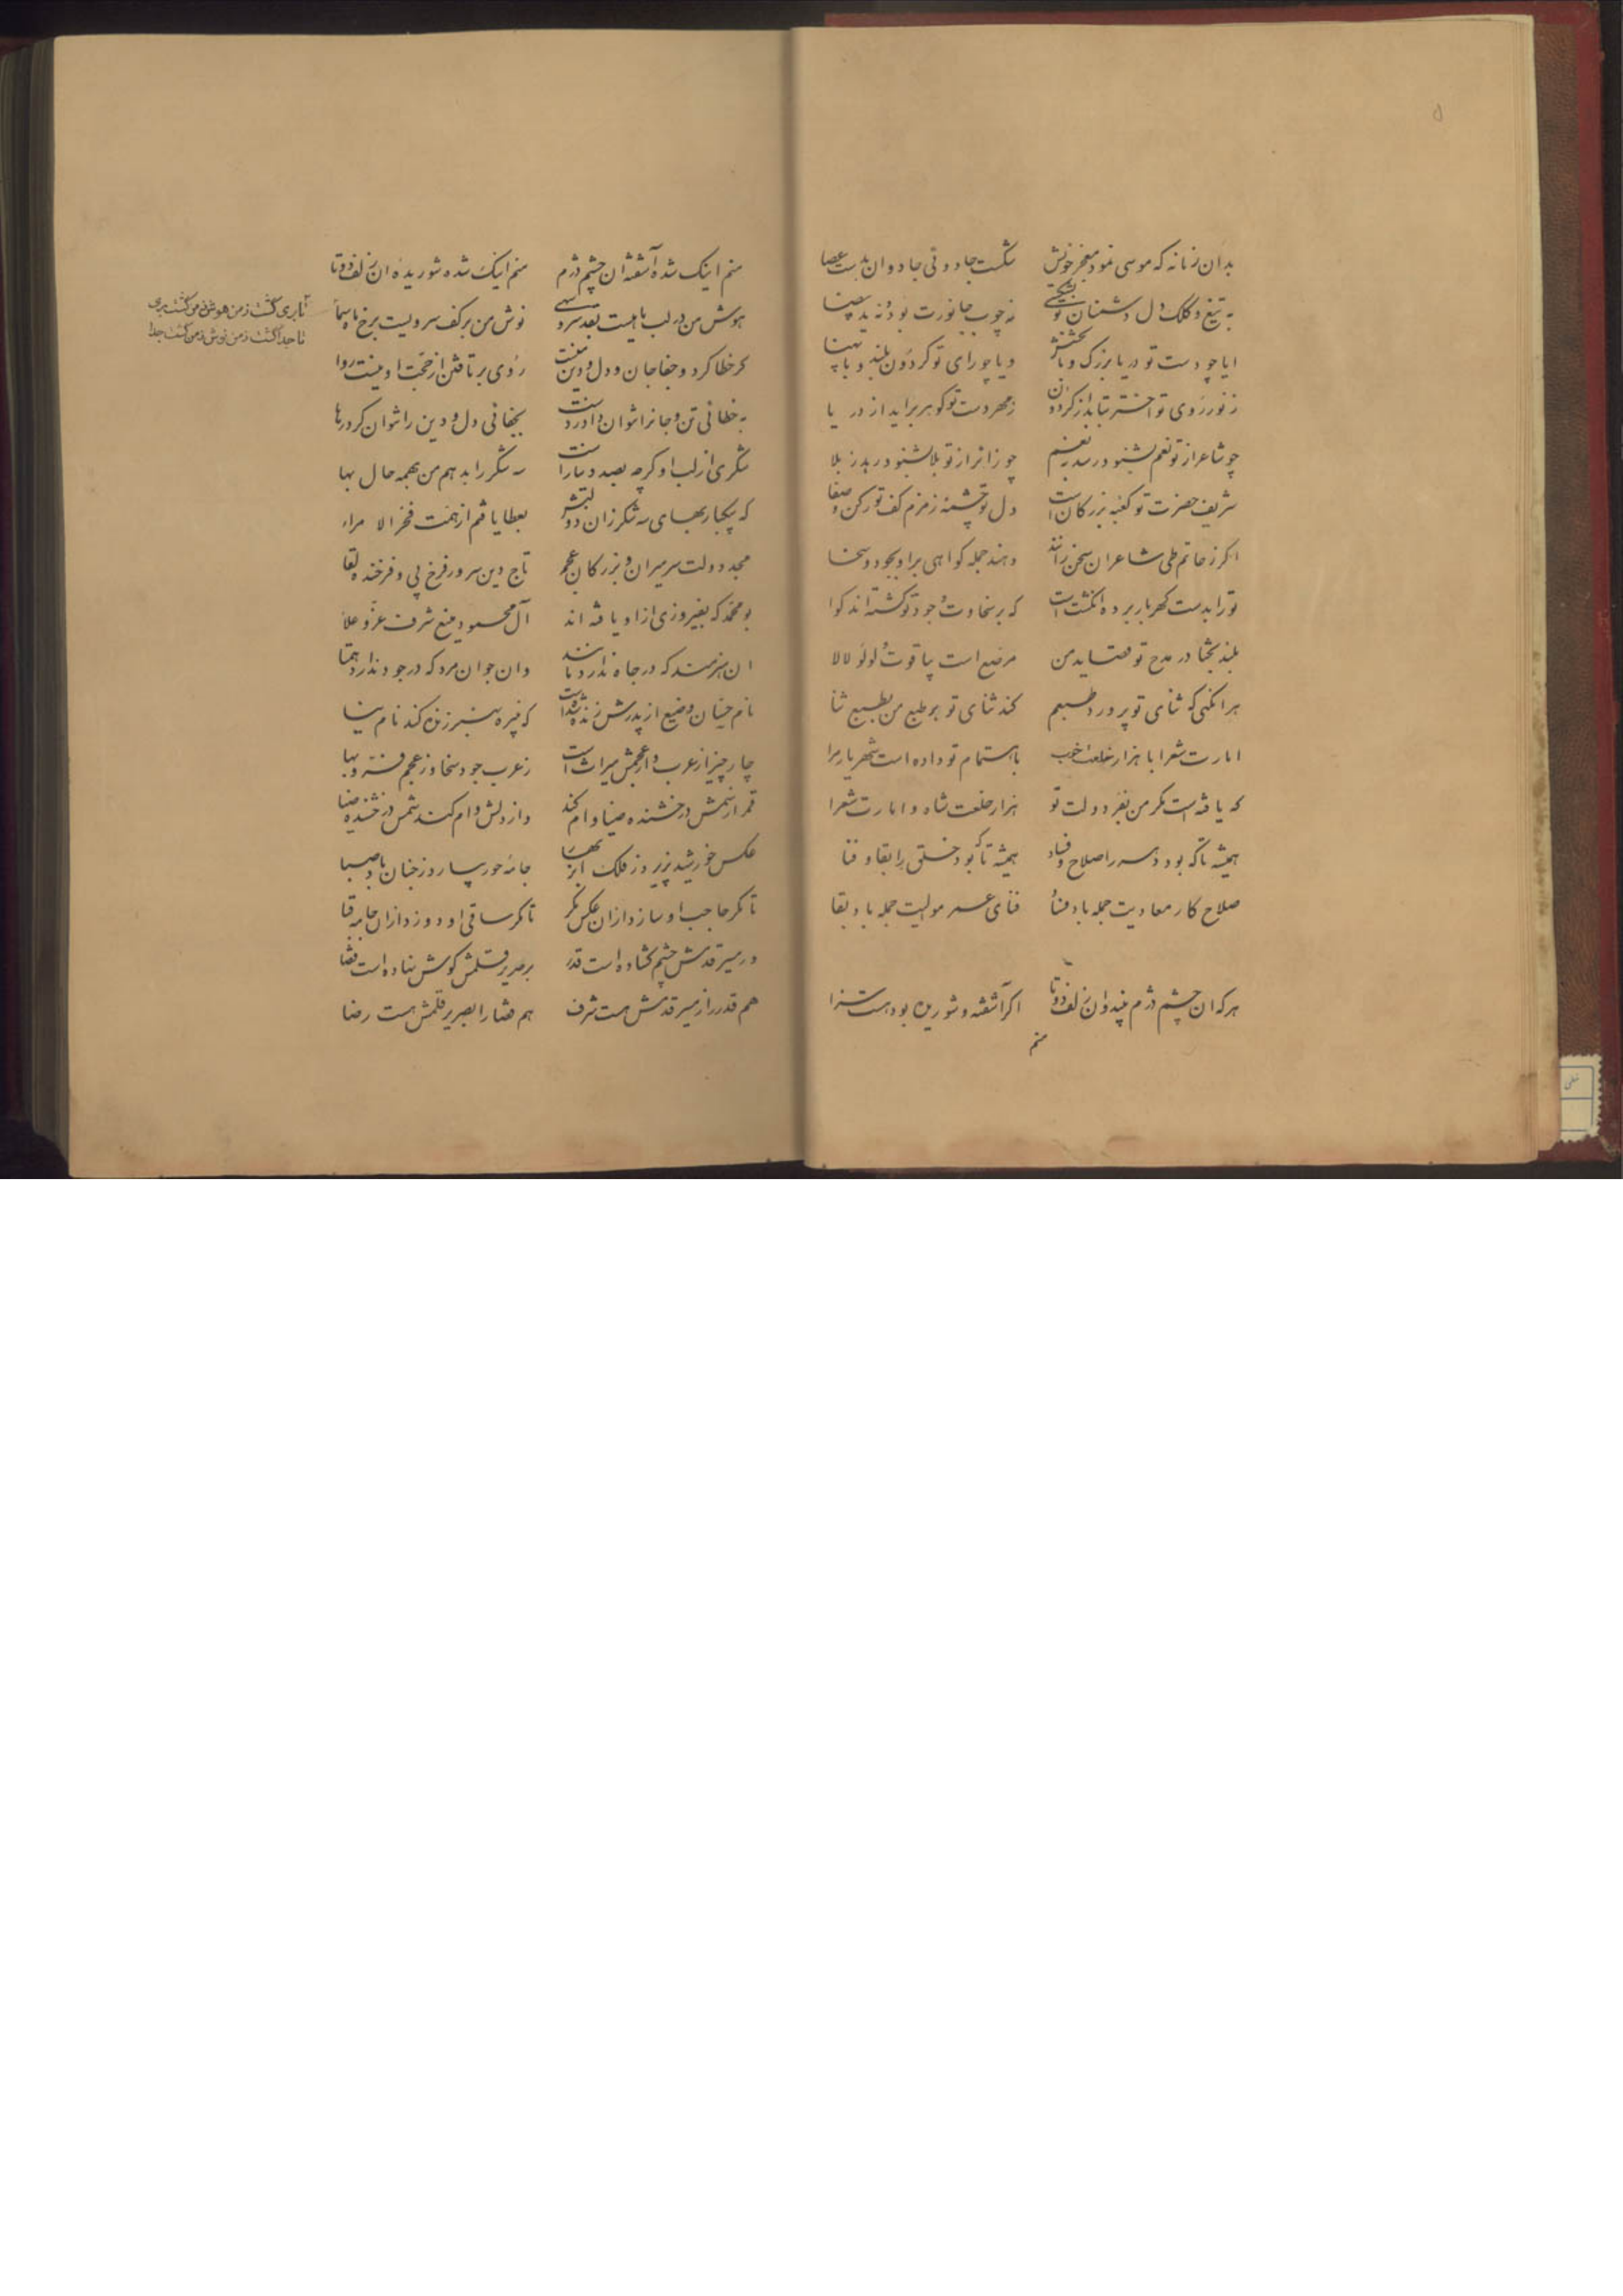 بدان زمانه که موسی نمود معجز خویش شکست جادوئی جادوان بدست عصا
به تیغ و کلک دل دشمنان تو بشکستی نه چوب جانورت بود و نه ید بیضا
ایا چو دست تو دریا بزرگ و با بخشش و یا چو رای تو گردون بلند و با پهنا
ز نور روی تو اختر بتابد از گردون ز مهر دست تو گوهر برآید از دریا
چو شاعر از تو نعم بشنود رسد به نعم چو زائر از تو بلا بشنود رهد ز بلا
شریف حضرت تو کعبه بزرگان است دل تو چشمه زمزم کف تو رکن و صفا
اگر ز حاتم طی شاعران سخن رانند دهند جمله گواهی برو بجود و سخا
تو را بدست گهربار بر ده انگشت است که بر سخاوت و جود تو گشته اند گوا
بلند بختا در مدح تو قصاید من مرصع است بیاقوت و لولو لالا
هر آنگهی که ثنای تو پرورد طبعم کند ثنای تو بر طبع من بطبع ثنا
امارت شعرا با هزار خلعت خوب باهتمام تو داده است شهریار مرا
که یافته است مگر من بفر دولت تو هزار خلعت شاه و امارت شعرا
همیشه تا که بود دهر را صلاح و فساد همیشه تا که بود خلق را بقا و فنا
صلاح کار معادیت جمله باد فساد فنای عمر موالیت جمله باد بقا
هر که آن چشم دژم بیند و آن زلف دوتا اگر آشفته و شوریده بود هست سزا
منم
منم اینک شده آشفته آن چشم دژم منم اینک شده شوریده آن زلف دوتا
هوش من در لب ماهیست بقد سرو سهی نوش من بر کف سرویست برخ ماه سما
تا بری گشت ز من هوش من گشت بری
تا جدا گشت ز من نوش ز من گشت جدا
گر خطا کرد و جفا جان و دل و دین منست روی برتافتن از صحبت او نیست روا
به خطائی تن و جانرا نتوان داد ز دست بجفائی دل و دین را نتوان کرد رها
شکری از لب او گرچه بصد دینار است سه شکر را بدهم من بهمه حال بها
که بیکبار بهای سه شکر زان دو لبش بعطا یافتم از همت فخر الامراء
مجد دولت سر میران و بزرگان عجم تاج دین سرور فرخ پی و فرخنده لقا
بو محمد که بفیروزی ازو یافته اند آل محمود منیع شرف عز و علا
آن هنرمند که در جاه ندارد مانند وان جوانمرد که در جود ندارد همتا
نام جنیان وضیع از پدرش زنده شده است که نبیره به هنر زنده کند نام نیا
چار چیز از عرب و از عجمش میراث است ز عرب جود و سخا وز عجم فر و بها
قمر از شمس درخشنده ضیا وام کند واز دلش وام کند شمس درخشنده ضیا
عکس خورشید پزیرد ز فلک ابر بهار جامه حور بیارد ز جنان باد صبا
تا مگر حاجب او سازد ازان عکس کمر تا مگر ساقی او دوزد ازان جامه قبا
در مسیر قدمش چشم گشاده است قدر بر صریر قلمش گوش نهاده است قضا
هم قدر را ز مسیر قدمش هست شرف هم قضا را بصریر قلمش هست رضا